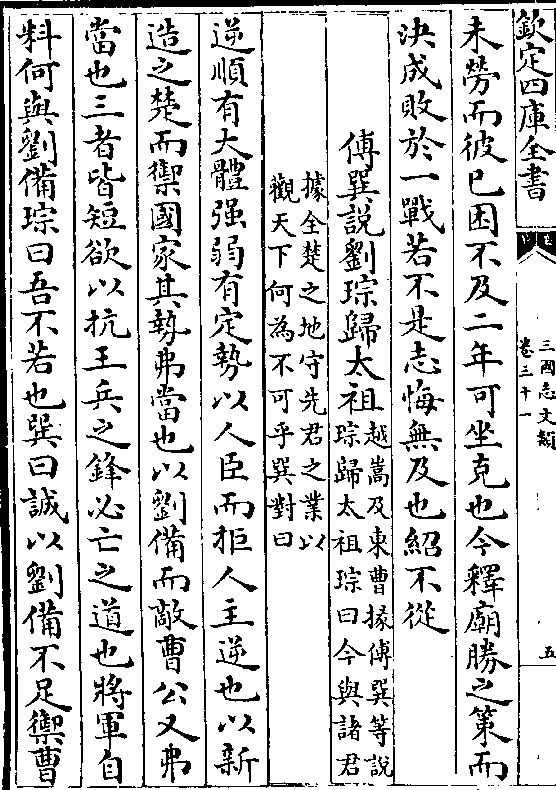 欽定四庫全書
三國志文類
卷三十一
五
未勞而彼已困不及二年可坐克也今釋廟勝之策而
決成敗於一戰若不是志悔無及也紹不從
傅巽說劉琮歸太祖
越嵩及東曹掾傅巽等說
琮歸太祖琮曰今與諸君
據全楚之地守先君之業以
觀天下何為不可乎巽對曰
逆順有大體强弱有定勢以人臣而拒人主逆也以新
造之楚而禦國家其勢弗當也以劉備而敵曹公又弗
當也三者皆短欲以抗王兵之鋒必亡之道也將軍自
料何與劉備琮曰吾不若也巽曰誠以劉備不足禦曹